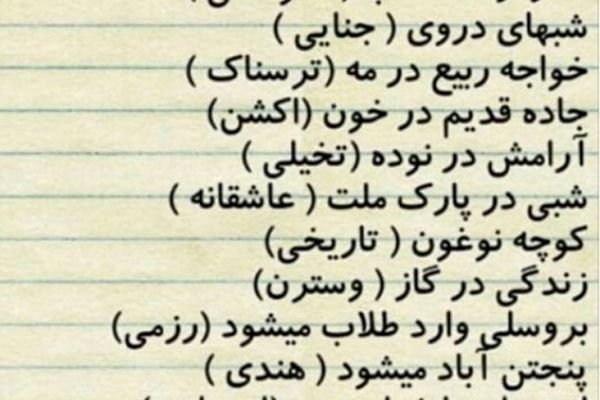 شبهای دروی ( جنایی )
خواجه ربیع در مه (ترسناک )
جاده قدیم در خون (اکشن)
آرامش در نوده (تخیلی )
شبی در پارک ملت ( عاشقانه )
کوچه نوغون ( تاریخی)
زندگی در گاز ( وسترن)
بروسلی وارد طلاب میشود (رزمی)
پنجتن آباد میشود ( هندی )